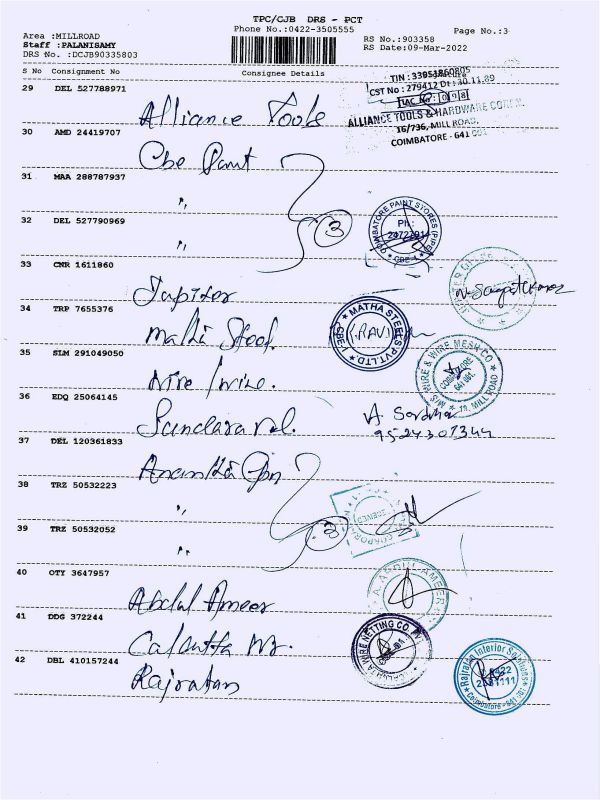 TPC/CJB DRS - PCT
Phone No.:0422-3505555
Page No.:3
Area :MILLROAD
Staff :PALANISAMY
DRS No. :DCJB90335803
RS No.:903358
RS Date:09-Mar-2022
S No Consignment No Consignee Details
TIN : 33951860805
CST No : 279412 Dt : 30.11.89
ALLIANCE TOOLS & HARDWARE
16/736, MILL ROAD,
COIMBATORE - 641 001
29 DEL 527788971
Alliance Tools
30 AMD 24419707
Cbe Paint
31 MAA 288787937
"
3
COIMBATORE PAINT STORES
PH:
CBE-1
32 DEL 527790969
"
33 CNR 1611860
Jupiter
34 TRP 7655376
Matha Steel
MATHA STEELS PVT. LTD
35 SLM 291049050
Wire
M/S WIRE & WIRE MESH CO
COIMBATORE
641 001
MILL ROAD
36 EDQ 25064145
37 DEL 120361833
38 TRZ 50532223
"
3
39 TRZ 50532052
"
40 OTY 3647957
Abdul Ameer
41 DDG 372244
Calcutta Wr.
CALCUTTA WIRE NETTING CO.
42 DBL 410157244
Rajratan
Rajratan Interior Solutions